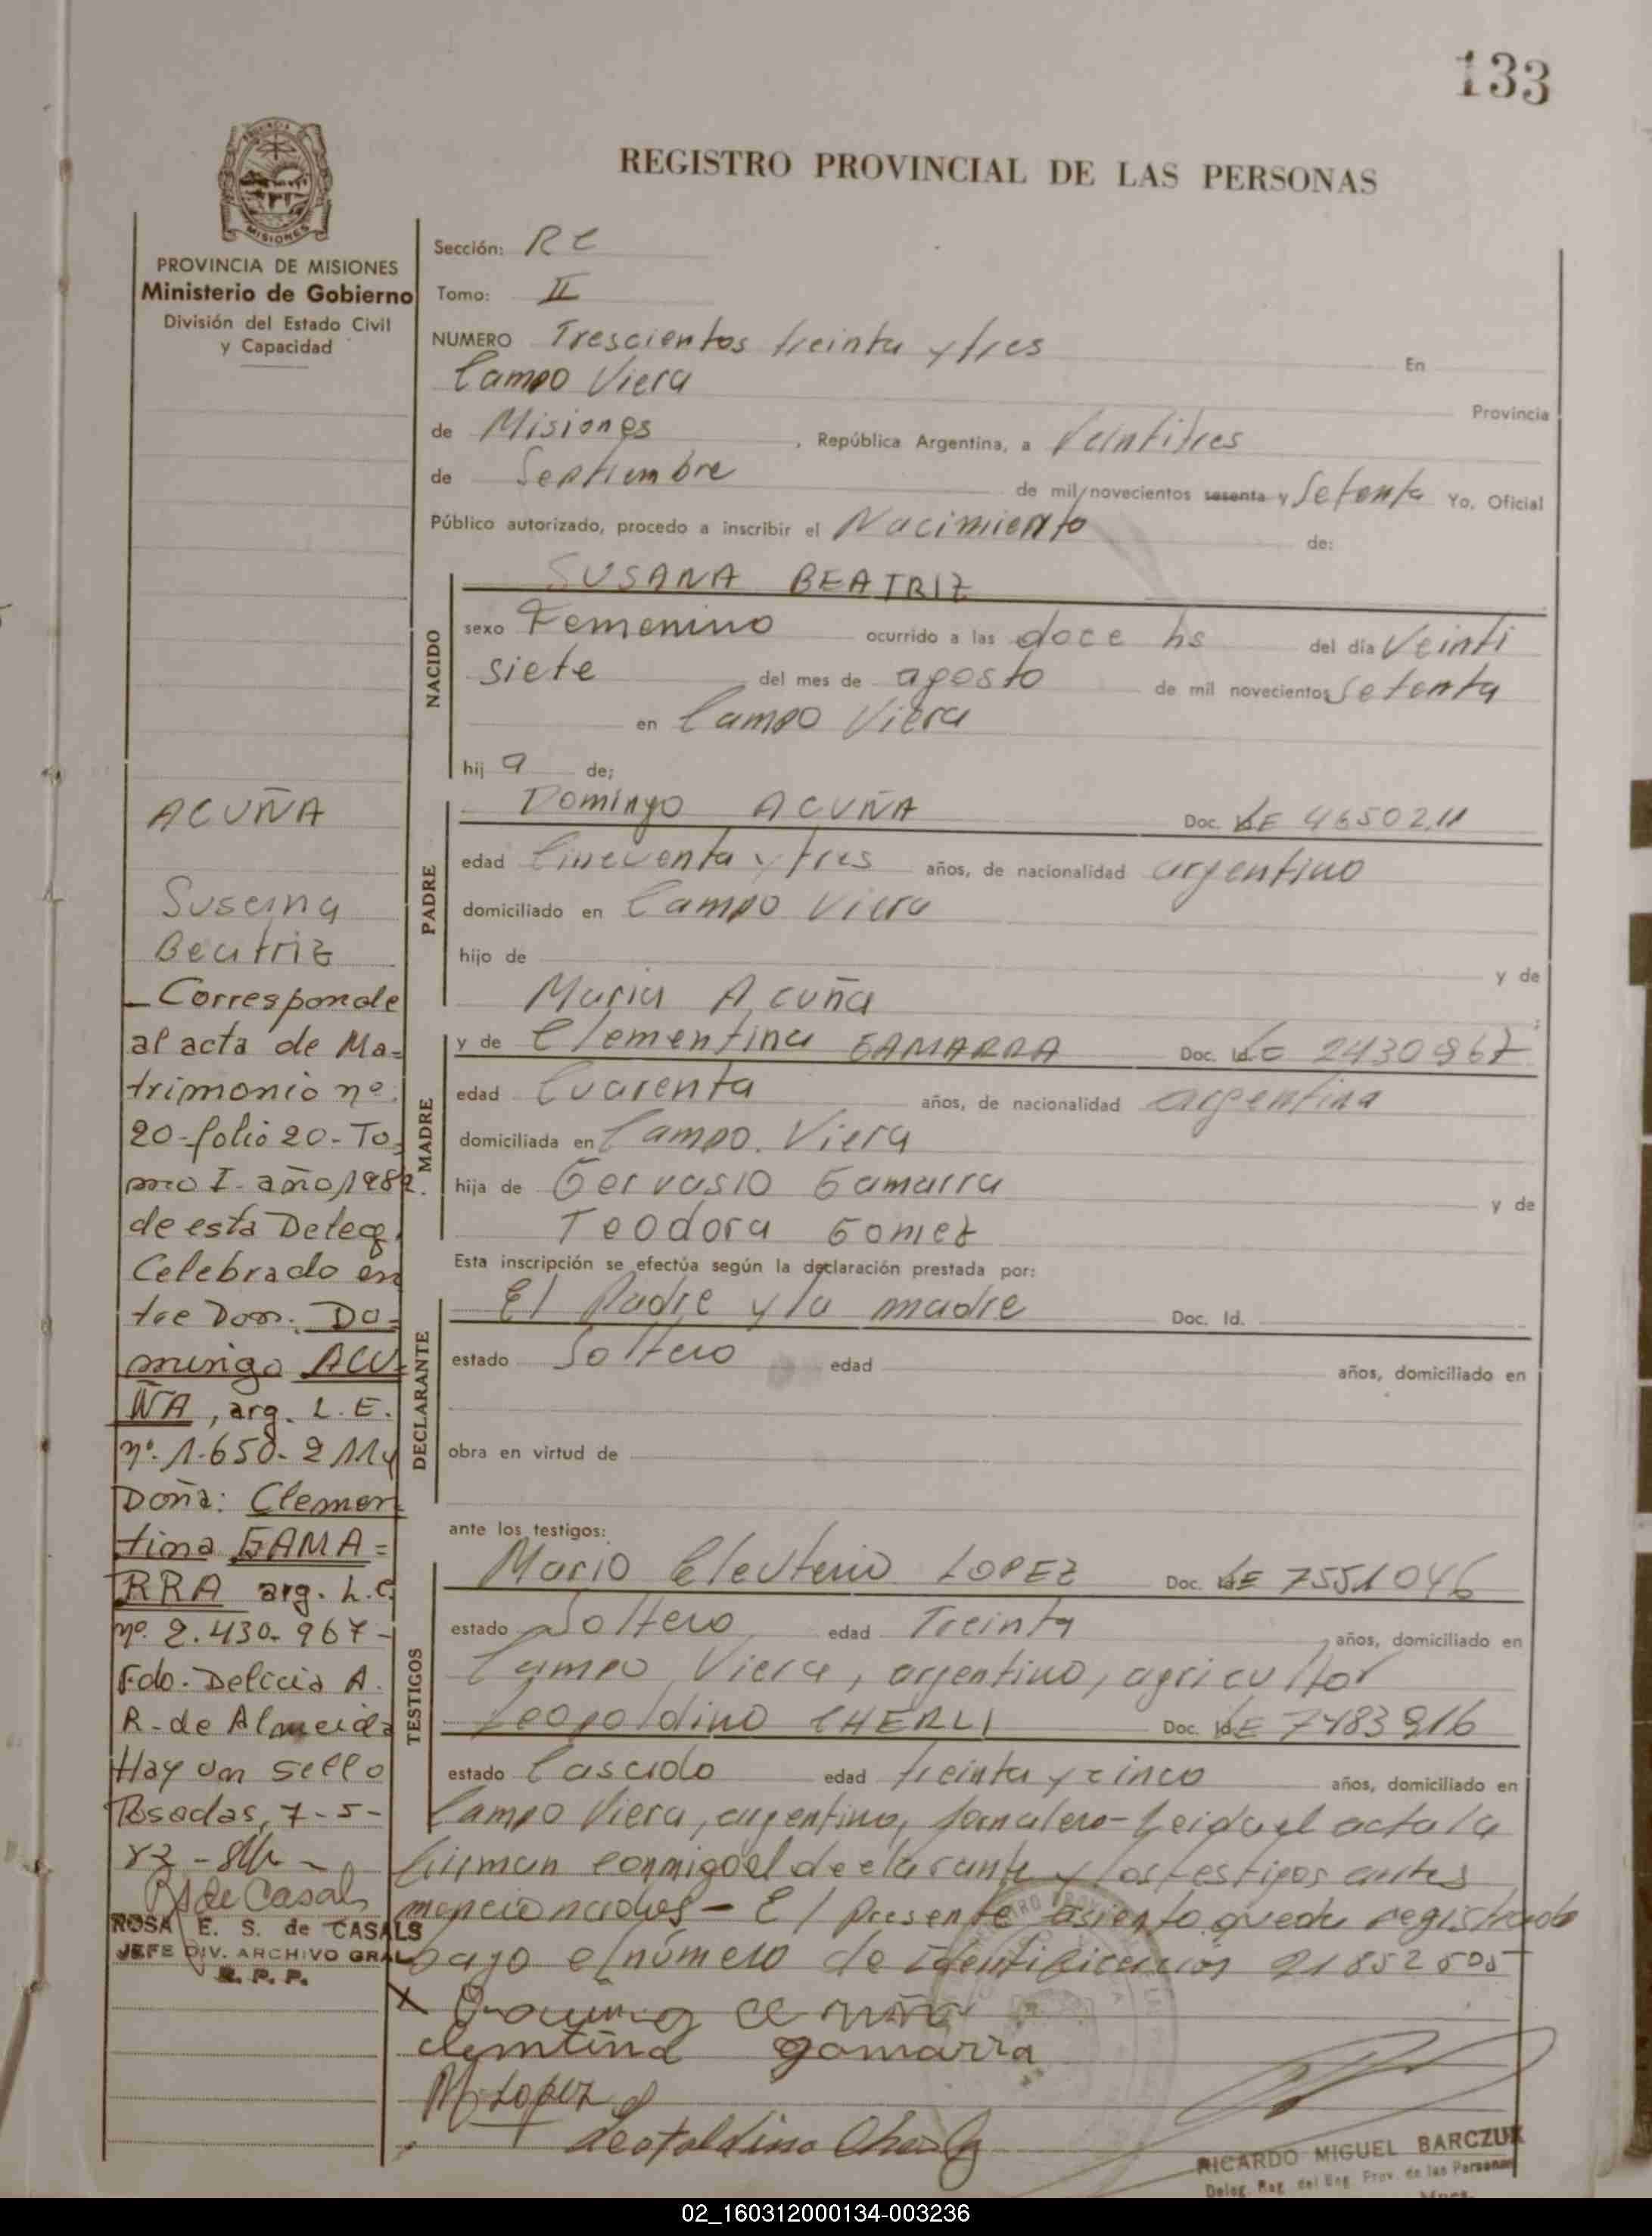 133
REGISTRO PROVINCIAL DE LAS PERSONAS
MISIONES
PROVINCIA DE MISIONES
Ministerio de Gobierno
División del Estado Civil
y Capacidad
Sección: RC
Tomo: II
NUMERO Trescientos treinta y tres En
Campo Viera Provincia
de Misiones, República Argentina, a Veintitres
de Septiembre de mil novecientos sesenta y Setenta Yo, Oficial
Público autorizado, procedo a inscribir el Nacimiento de:
NACIDO
SUSANA BEATRIZ
sexo Femenino ocurrido a las doce hs del día Veinti
siete del mes de agosto de mil novecientos Setenta
en Campo Viera
hij a de;
PADRE
Domingo ACUÑA Doc. LE
edad Cincuenta y tres años, de nacionalidad argentino
domiciliado en Campo Viera
hijo de y de
Maria Acuña
MADRE
y de Clementina GAMARRA Doc. Id. LC 2430967
edad Cuarenta años, de nacionalidad argentina
domiciliada en Campo Viera
hija de Gervasio Gamarra y de
Teodora Gomez
Esta inscripción se efectúa según la declaración prestada por:
DECLARANTE
El Padre y la madre Doc. Id.
estado Soltero edad años, domiciliado en
obra en virtud de
ante los testigos:
TESTIGOS
Mario Eleuterio LOPEZ Doc. LE 7551046
estado Soltero edad Treinta años, domiciliado en
Campo Viera, argentino, agricultor
Leopoldino CHERLI Doc. Id. LE 7483916
estado Casado edad treinta y cinco años, domiciliado en
Campo Viera, argentino, Jornalero - Leida el acta la
firman conmigo el declarante y los testigos antes
mencionados - El presente asiento queda registrado
bajo el número de identificación 21852505
clemtina gamarra
M Lopez
Leopoldino
RICARDO MIGUEL BARCZUK
ACUÑA
Susana
Beatriz
- Corresponde
al acta de Ma=
trimonio nº
20-folio 20-To=
mo I- año 1982.
de esta Deleg.
Celebrado en
tre Don: Do=
mingo ACU=
ÑA, arg. L.E.
nº. 1.650.211 y
Doña: Clemen
tina GAMA=
RRA arg. L.C.
nº. 2.430.967-
Fdo. Delicia A.
R. de Almeida
Hay un sello
Posadas, 7-5-
ROSA E. S. de CASALS
JEFE DIV. ARCHIVO GRAL
R. P. P.
02_160312000134-003236